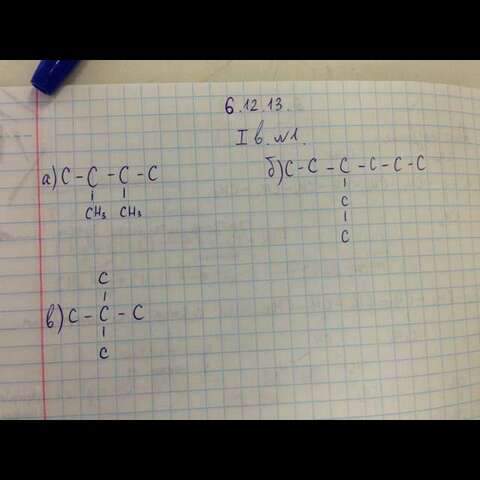 6.12.13.
I в. №1.
а) C - C - C - C
CH₃ CH₃
б) C - C - C - C - C - C
C
C
C
в) C - C - C
C